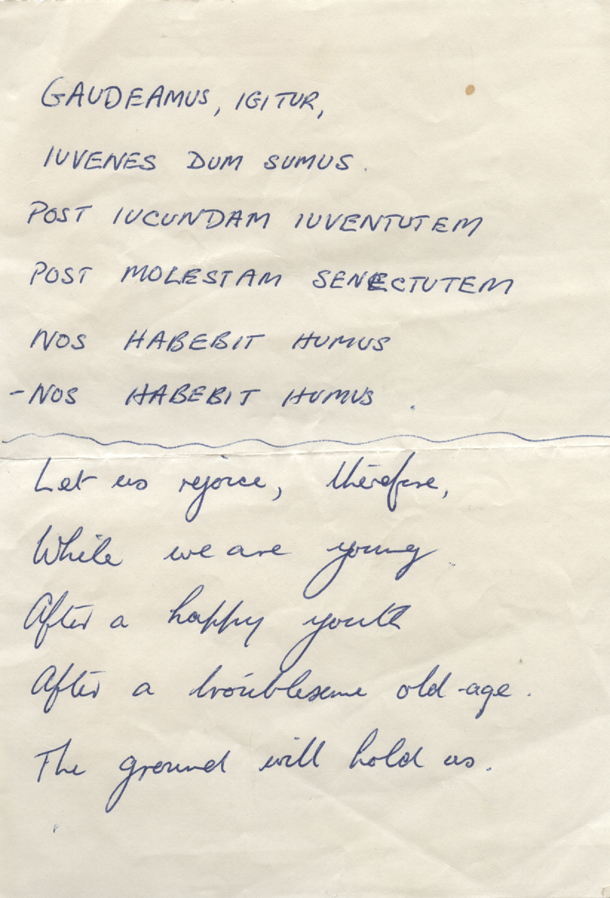 GAUDEAMUS, IGITUR,
IUVENES DUM SUMUS.
POST IUCUNDAM IUVENTUTEM
POST MOLESTAM SENECTUTEM
NOS HABEBIT HUMUS
-NOS HABEBIT HUMUS.
Let us rejoice, therefore,
While we are young
After a happy youth
After a troublesome old-age.
The ground will hold us.